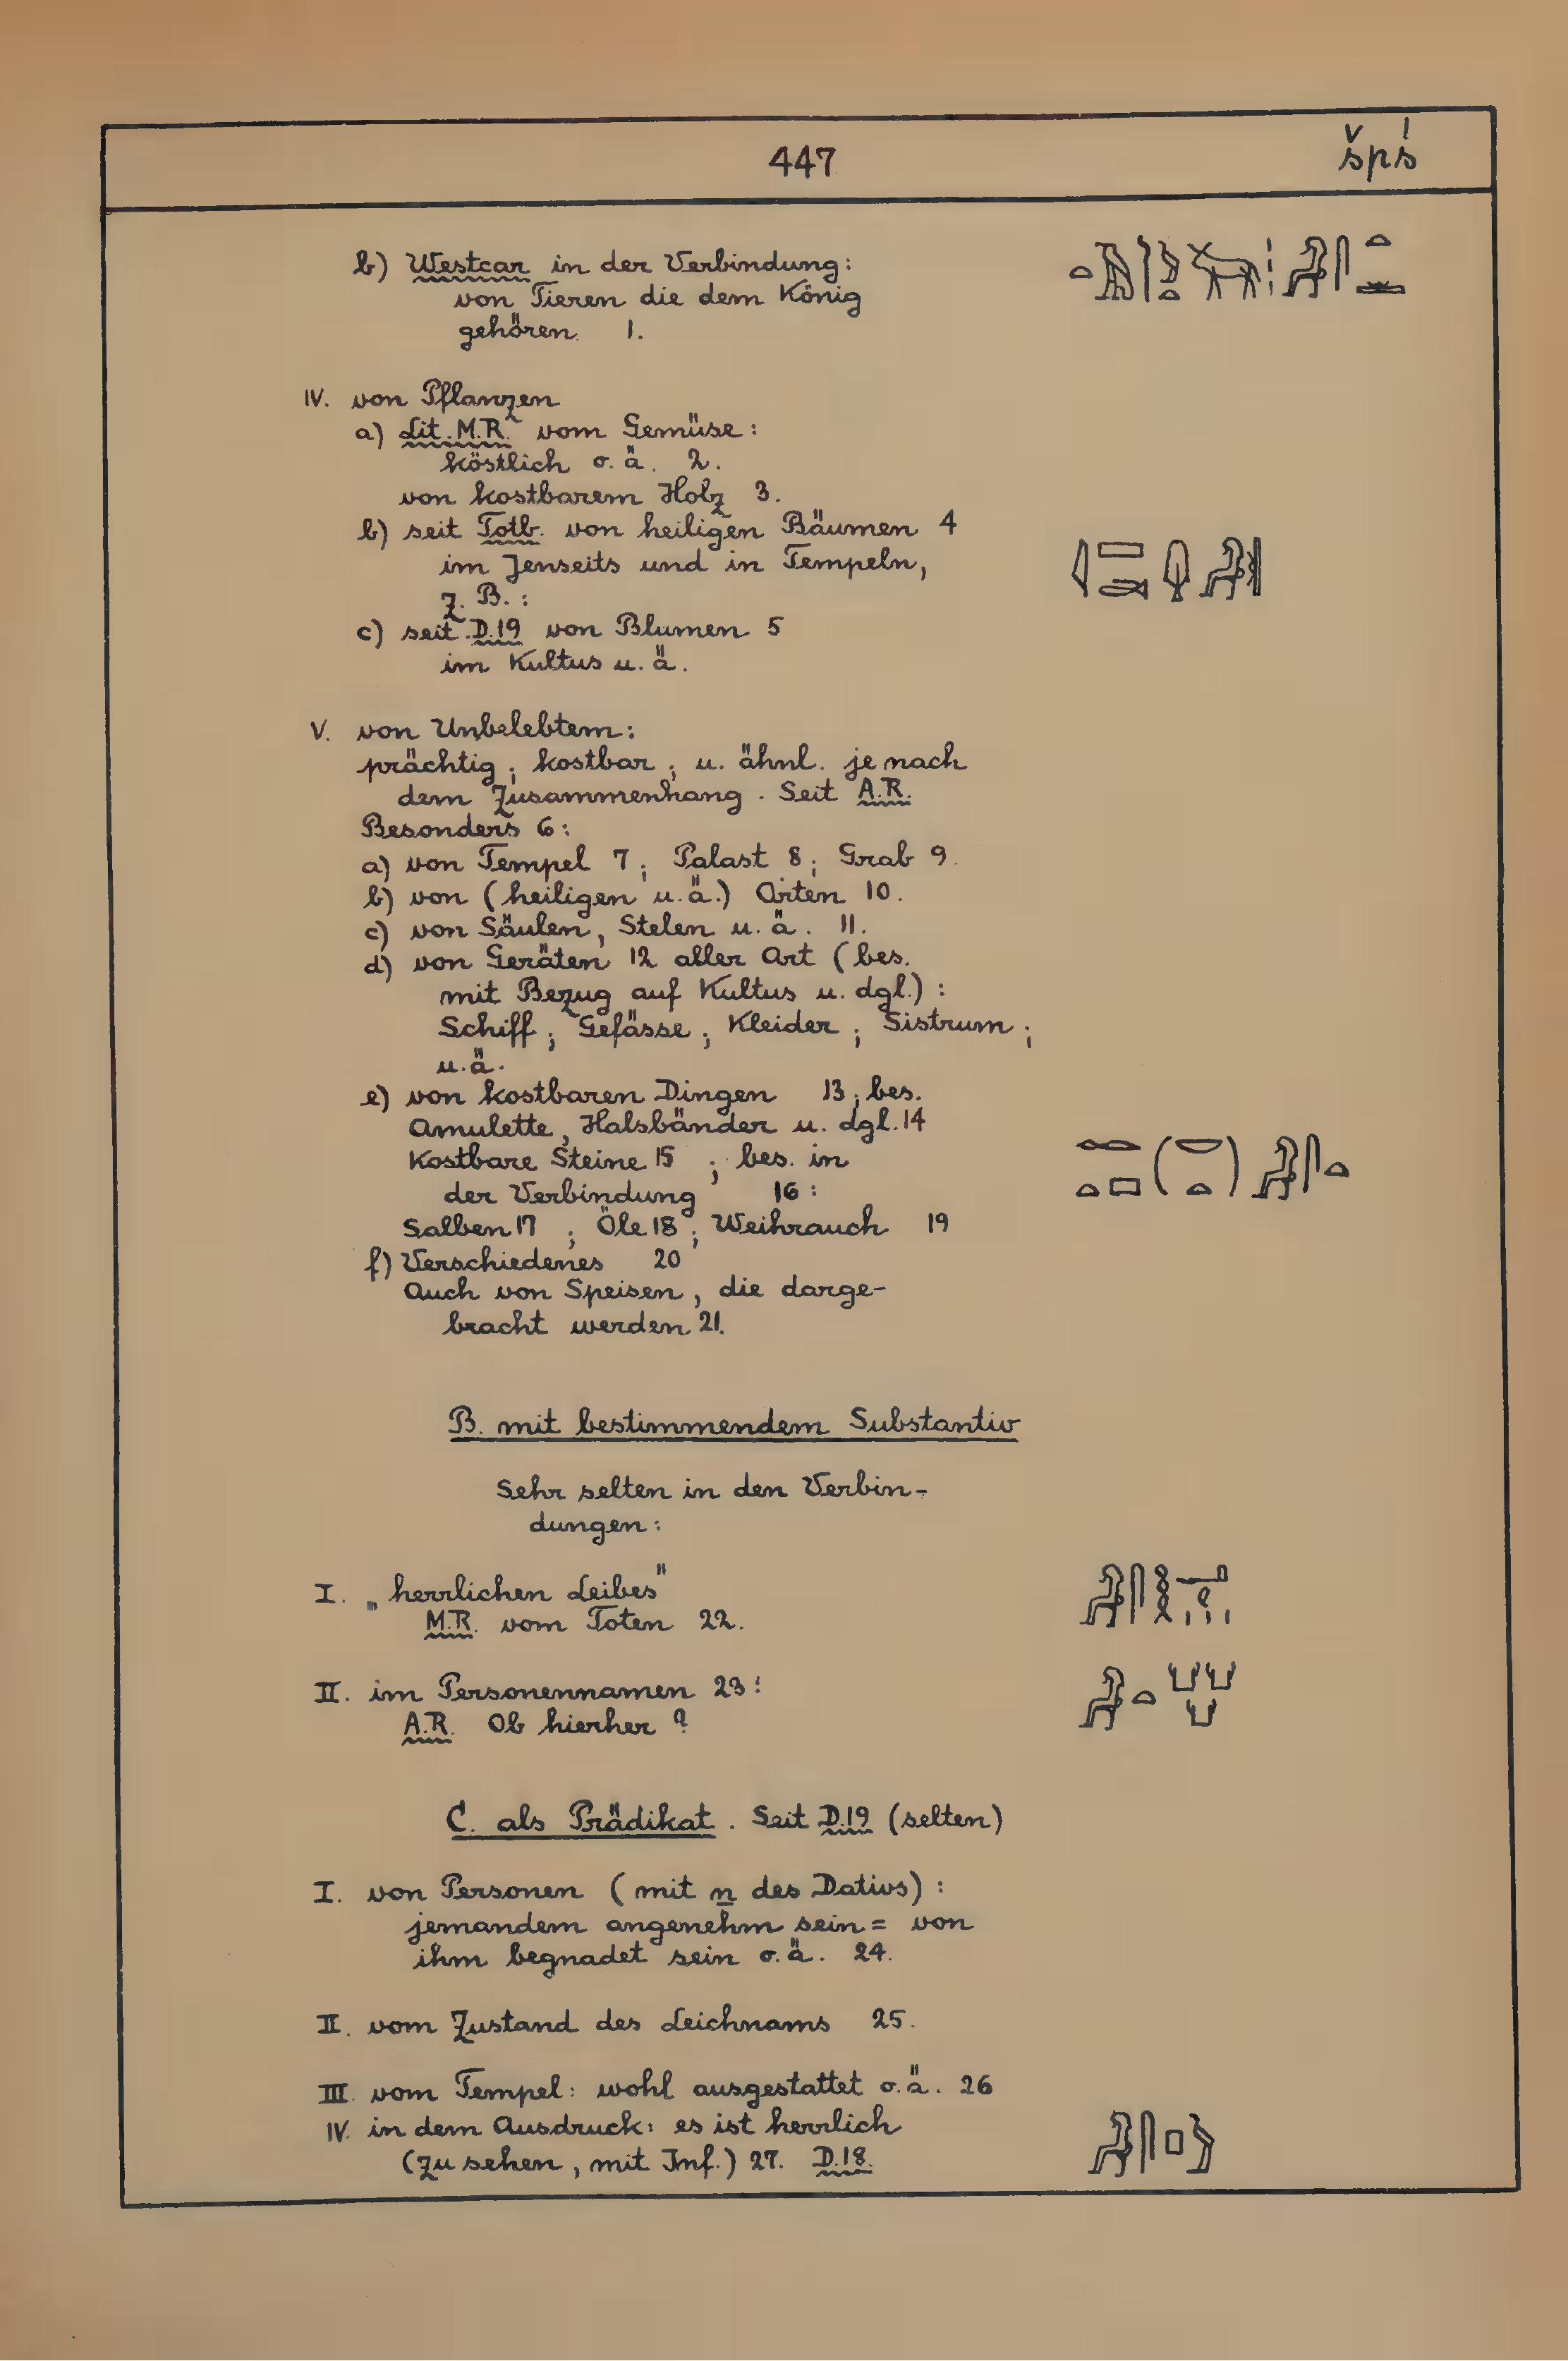 447
špś
b) Westcar in der Verbindung:
von Tieren die dem König
gehören. 1.
IV. von Pflanzen
a) Lit. M.R. vom Gemüse:
köstlich o. ä. 2.
von kostbarem Holz 3.
b) seit Totb. von heiligen Bäumen 4
im Jenseits und in Tempeln,
z. B.:
c) seit D.19 von Blumen 5
im Kultus u. ä.
V. von Unbelebtem:
prächtig; kostbar; u. ähnl. je nach
dem Zusammenhang. Seit A.R.
Besonders 6:
a) von Tempel 7; Palast 8; Grab 9.
b) von (heiligen u. ä.) Orten 10.
c) von Säulen, Stelen u. ä. 11.
d) von Geräten 12 aller Art (bes.
mit Bezug auf Kultus u. dgl.):
Schiff; Gefässe; Kleider; Sistrum;
u. ä.
e) von kostbaren Dingen 13; bes.
Amulette, Halsbänder u. dgl. 14
Kostbare Steine 15; bes. in
der Verbindung 16:
Salben 17; Öle 18; Weihrauch 19
f) Verschiedenes 20
Auch von Speisen, die darge-
bracht werden 21.
B. mit bestimmendem Substantiv
Sehr selten in den Verbin-
dungen:
I. „herrlichen Leibes"
M.R. vom Toten 22.
II. im Personennamen 23:
A.R. Ob hierher?
C. als Prädikat. Seit D.19 (selten)
I. von Personen (mit n des Dativs):
jemandem angenehm sein = von
ihm begnadet sein o. ä. 24.
II. vom Zustand des Leichnams 25.
III. vom Tempel: wohl ausgestattet o. ä. 26
IV. in dem Ausdruck: es ist herrlich
(zu sehen, mit Inf.) 27. D.18.